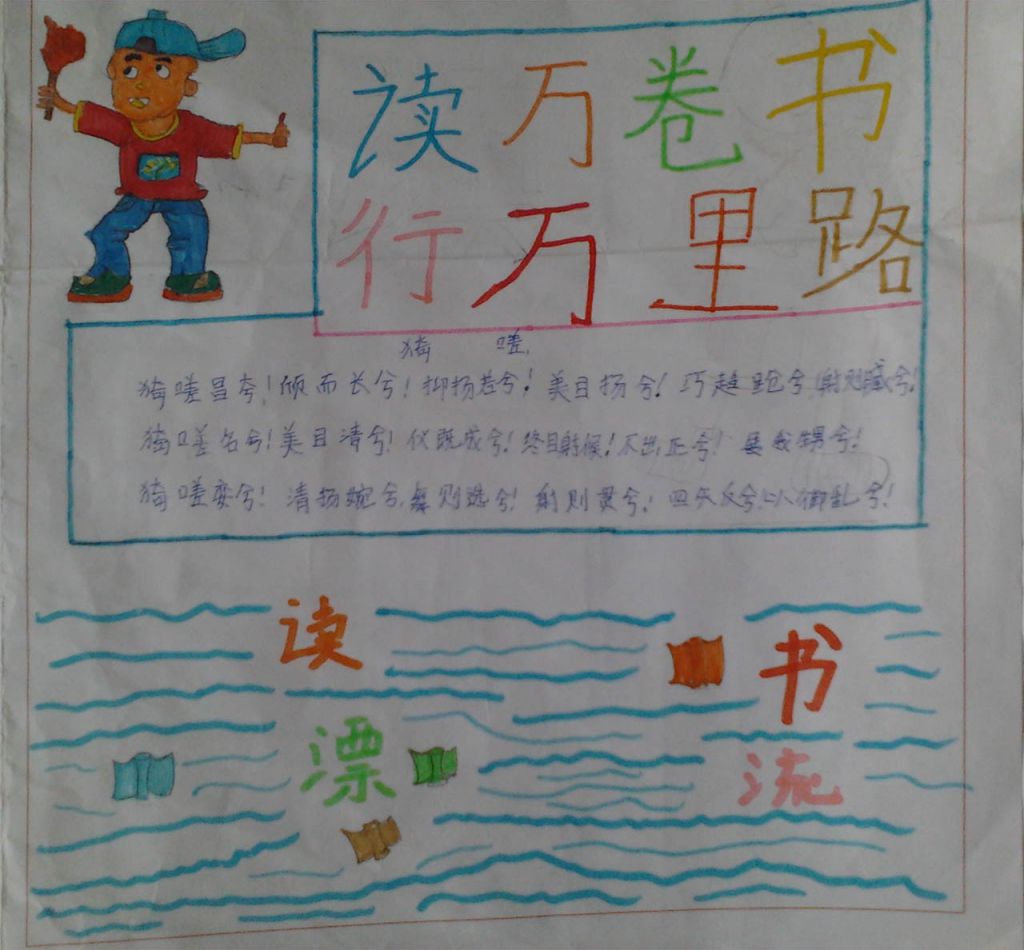 读万卷书
行万里路
猗嗟
猗嗟昌兮!倾而长兮!抑扬若兮!美目扬兮!巧趋跄兮射则臧兮!
猗嗟名兮!美目清兮!仪既成兮!终日射候!不出正兮!展我甥兮!
猗嗟娈兮!清扬婉兮,舞则选兮!射则贯兮!四矢反兮!以御乱兮!
读书
漂流